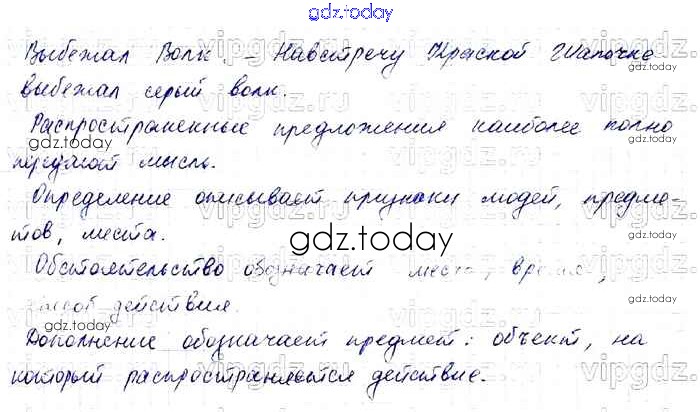 gdz.today
Выбежал Волк. - Навстречу Красной Шапочке
gdz.today
выбежал серый волк.
Распространенные предложения наиболее полно
gdz.today
передают мысль.
Определение описывает признаки людей, предме-
тов, места.
gdz.today
Обстоятельство обозначает место, время,
gdz.today
способ действия.
gdz.today
Дополнение обозначает предмет: объект, на
который распространяется действие.
gdz.today